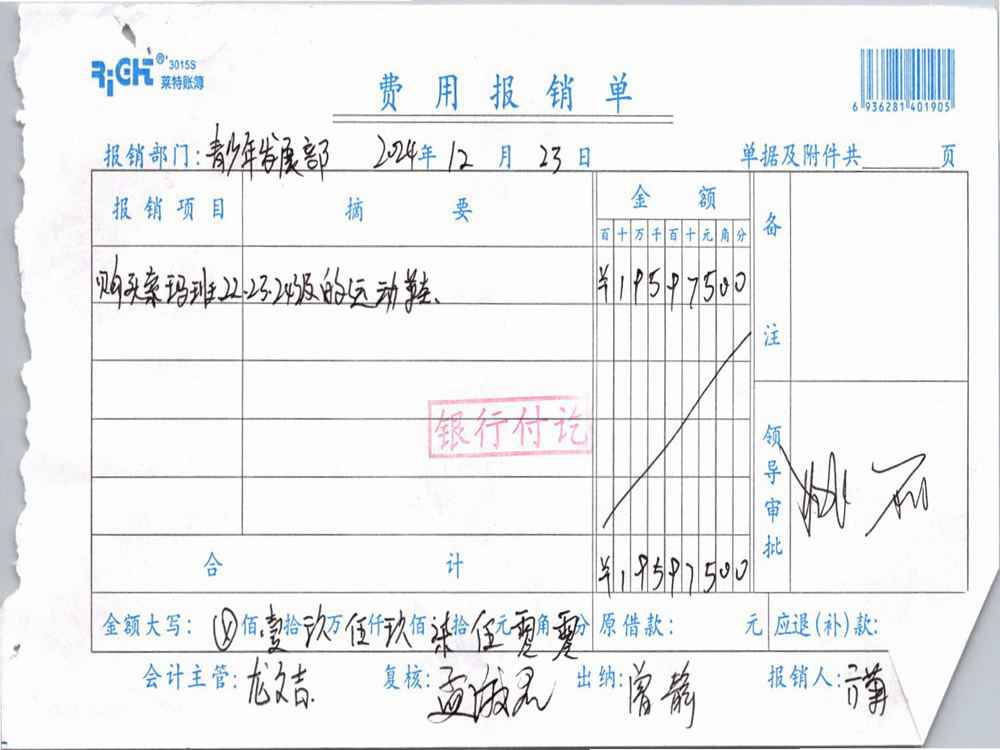 RiGHT® 3015S
莱特账簿
费用报销单
6 936281 401905
报销部门:青少年发展部 2024年12月23日 单据及附件共 页
报销项目 摘要 金额 备注
百十万千百十元角分
购买索玛班22.23.24级的运动鞋. ¥19597500
银行付讫
领导审批
合计 ¥19597500
金额大写: ⊗佰壹拾玖万伍仟玖佰柒拾伍元零角零分 原借款: 元 应退(补)款:
会计主管:龙文吉 复核:孟 出纳:曾静 报销人: